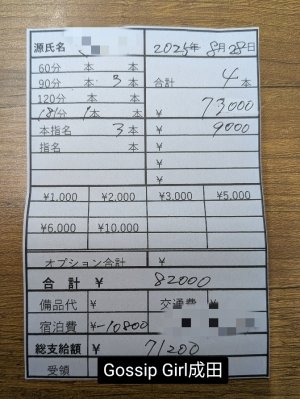 源氏名 2025年 8月 28日
60分 本 本
90分 本 3 本 合計 4本
120分 本 本 ¥ 73000
181分 1本 本 ¥ 9000
本指名 3 本 ¥
指名 本 ¥
¥
¥1,000 ¥2,000 ¥3,000 ¥5,000
¥6,000 ¥10,000
オプション合計 ¥
合計 ¥ 82000
備品代 ¥ 交通費
宿泊費 ¥-10800
総支給額 ¥ 71200
受領
Gossip Girl成田